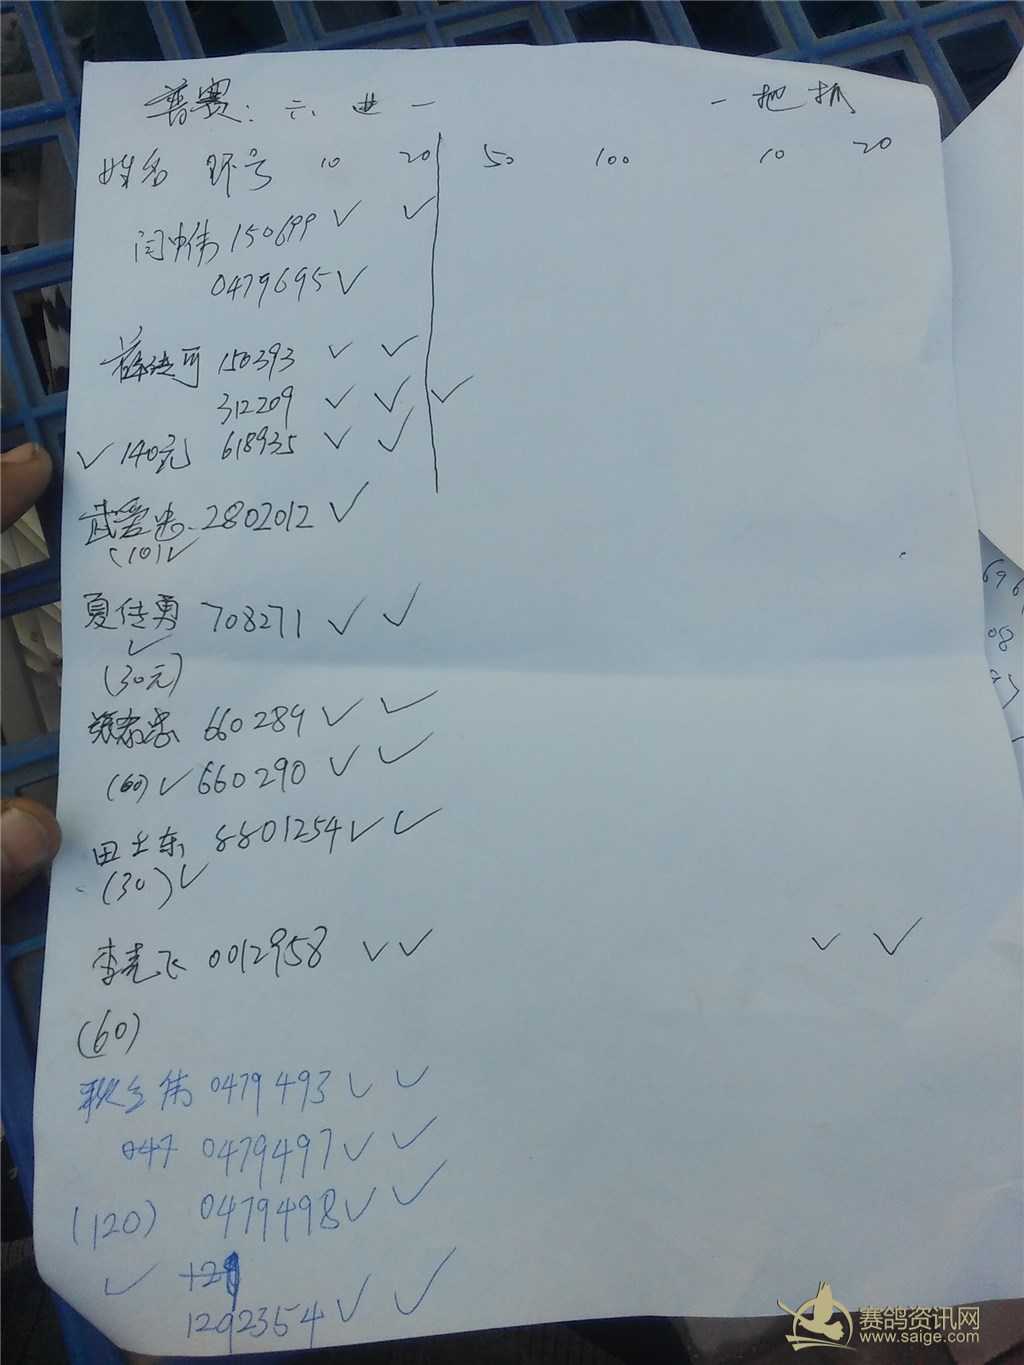 普赛: 六. 进一 一把抓
姓名 环号 10 20 50 100 10 20
闫中伟 150699 ✓ ✓
0479695 ✓
薛 可 150393 ✓ ✓
312209 ✓ ✓ ✓
✓ 140元 618935 ✓ ✓
武爱忠 2802012 ✓
(10) ✓
夏传勇 708271 ✓ ✓
✓
(30元)
660289 ✓ ✓
(60) ✓ 660290 ✓ ✓
田士东 8801254 ✓ ✓
(30) ✓
李克飞 0012958 ✓ ✓ ✓ ✓
(60)
耿立伟 0479493 ✓ ✓
047 0479497 ✓ ✓
(120) 0479498 ✓ ✓
✓
1292354 ✓ ✓
赛鸽资讯网
www.saige.com